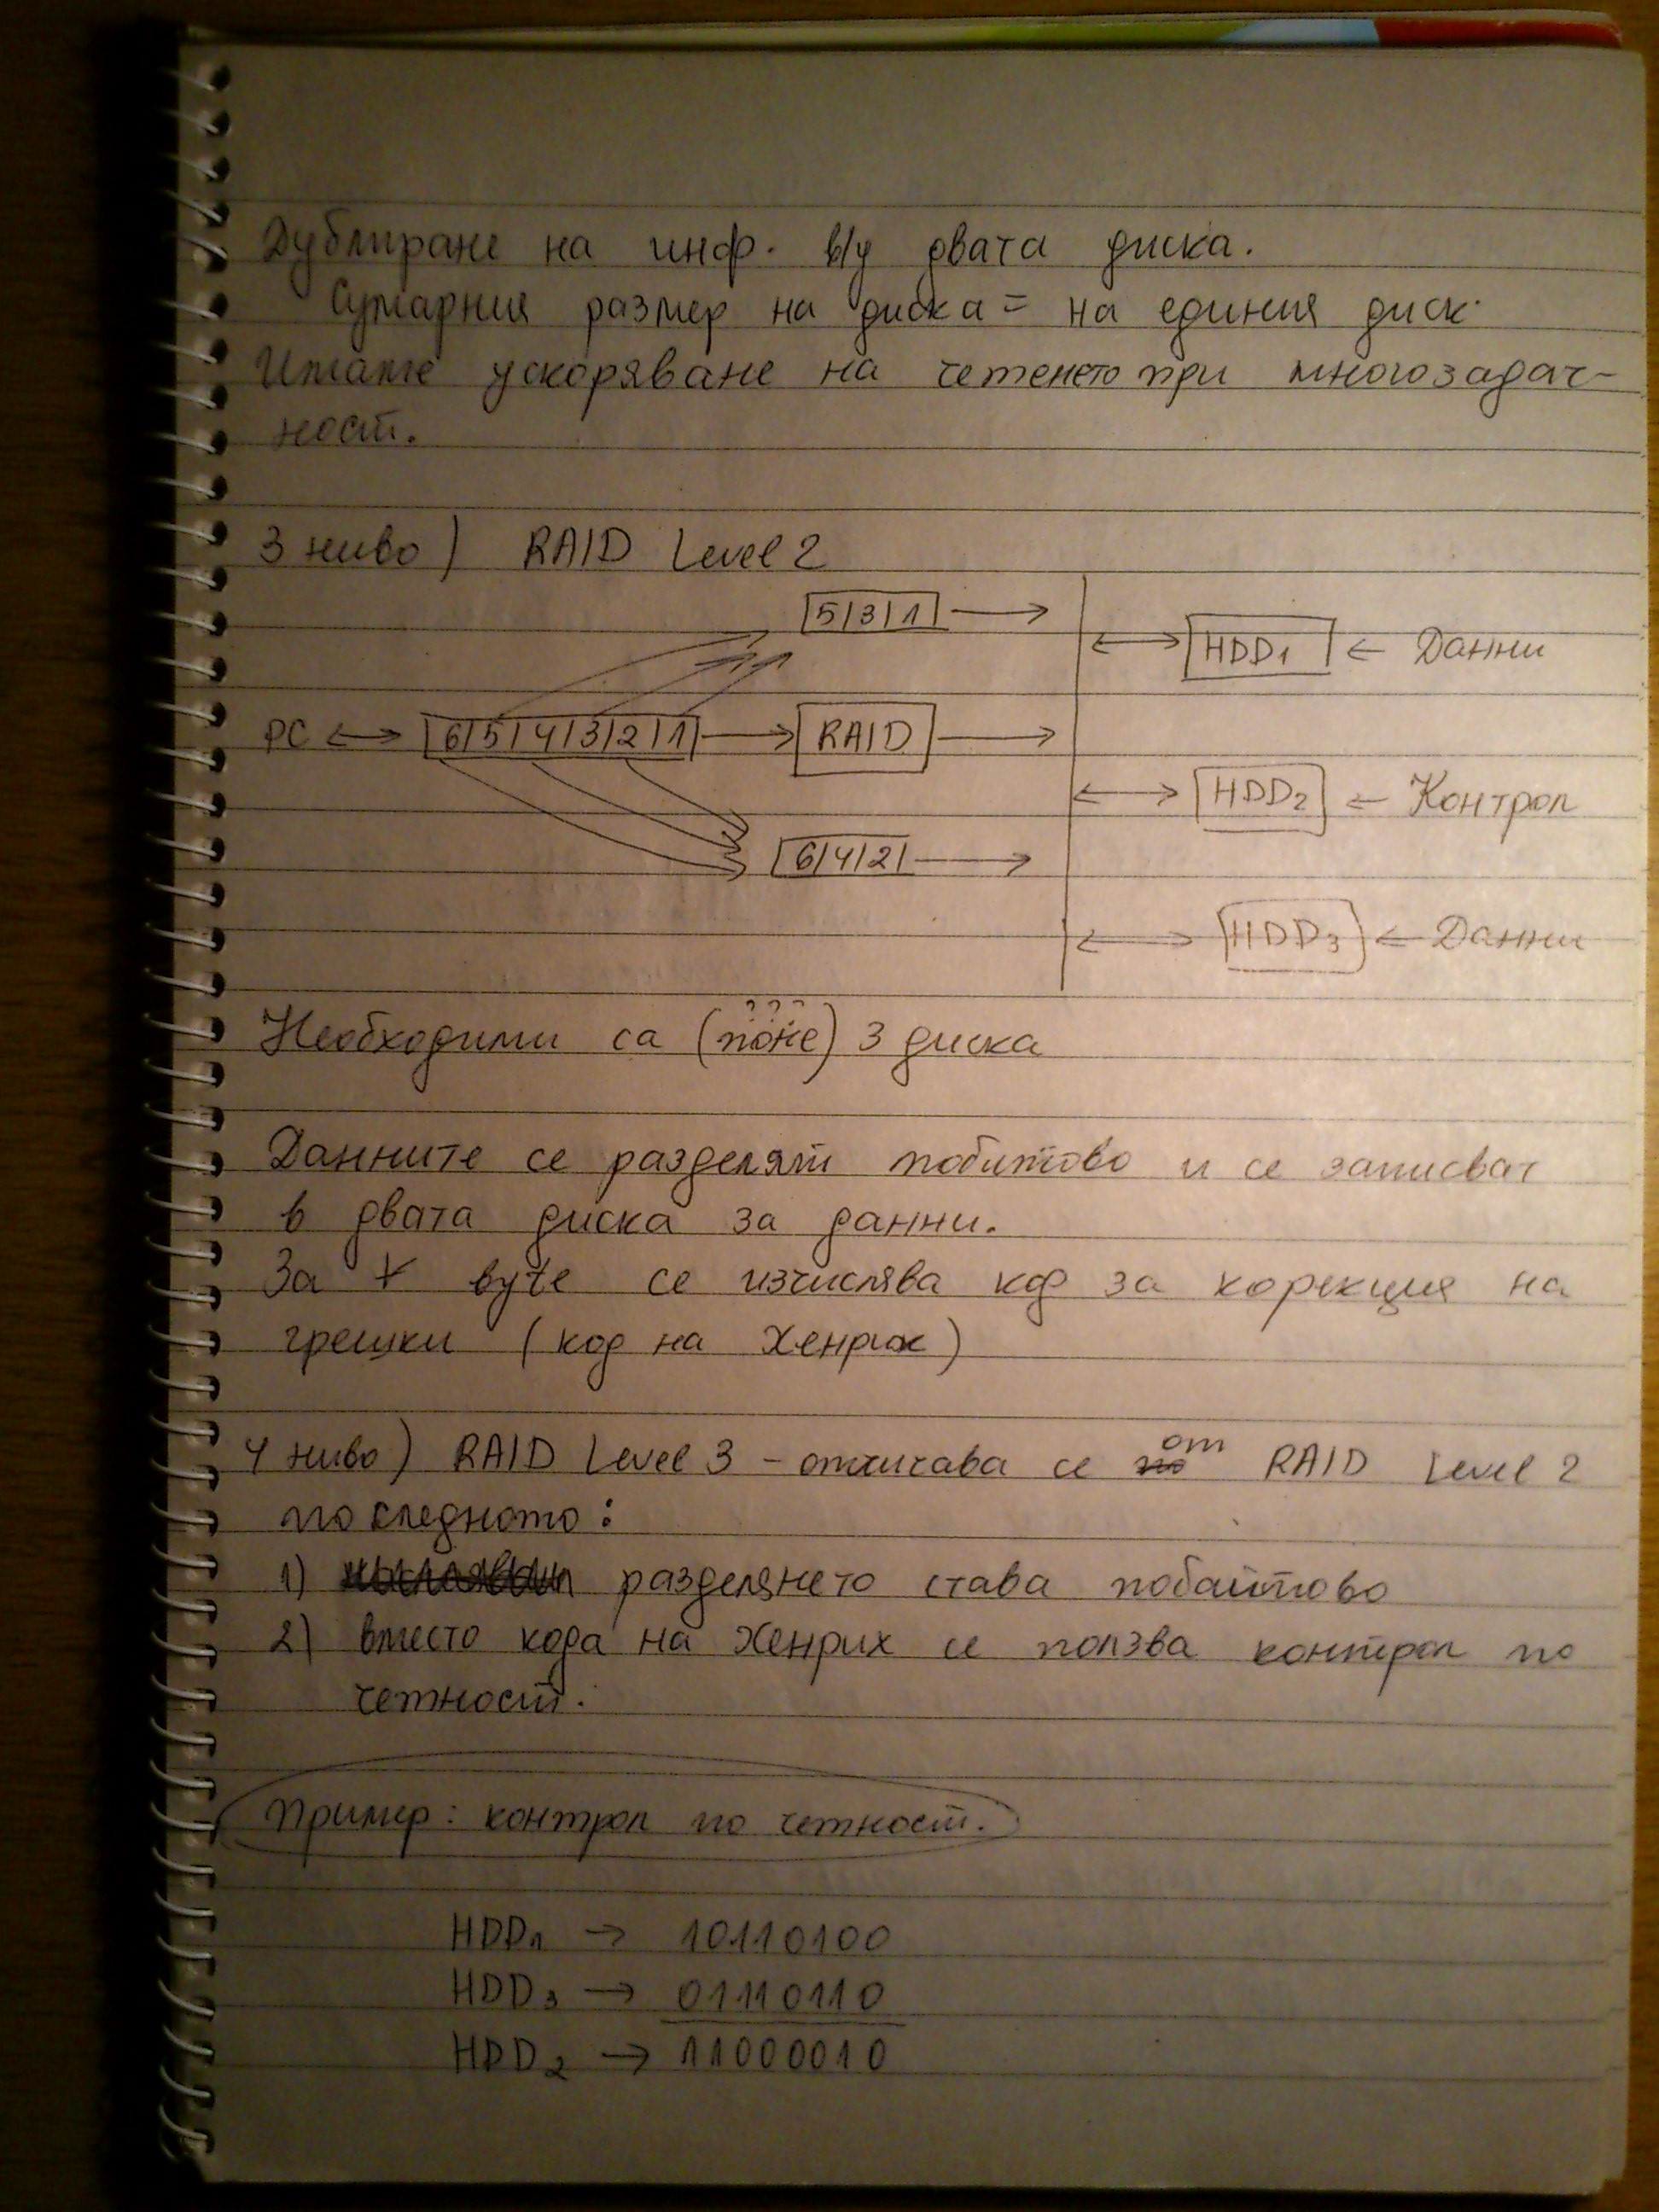 Дублиране на инф. в/у двата диска.
Сумарния размер на диска = на единия диск.
Имаме ускоряване на четенето при многозадач-
ност.
3 ниво) RAID Level 2
5|3|1 → ↔ HDD1 ← Данни
PC ↔ 6|5|4|3|2|1 → RAID →
↔ HDD2 ← Контрол
6|4|2| →
↔ HDD3 ← Данни
? ? ?
Необходими са (поне) 3 диска
Данните се разделят побитово и се записват
в двата диска за данни.
За ∀ byte се изчислява код за корекция на
грешки (код на Хенрих)
4 ниво) RAID Level 3 - отличава се от RAID Level 2
по следното:
1) разделянето става побайтово
2) вместо кода на Хенрих се ползва контрол по
четност.
Пример: контрол по четност.
HDD1 → 10110100
HDD3 → 01110110
HDD2 → 11000010